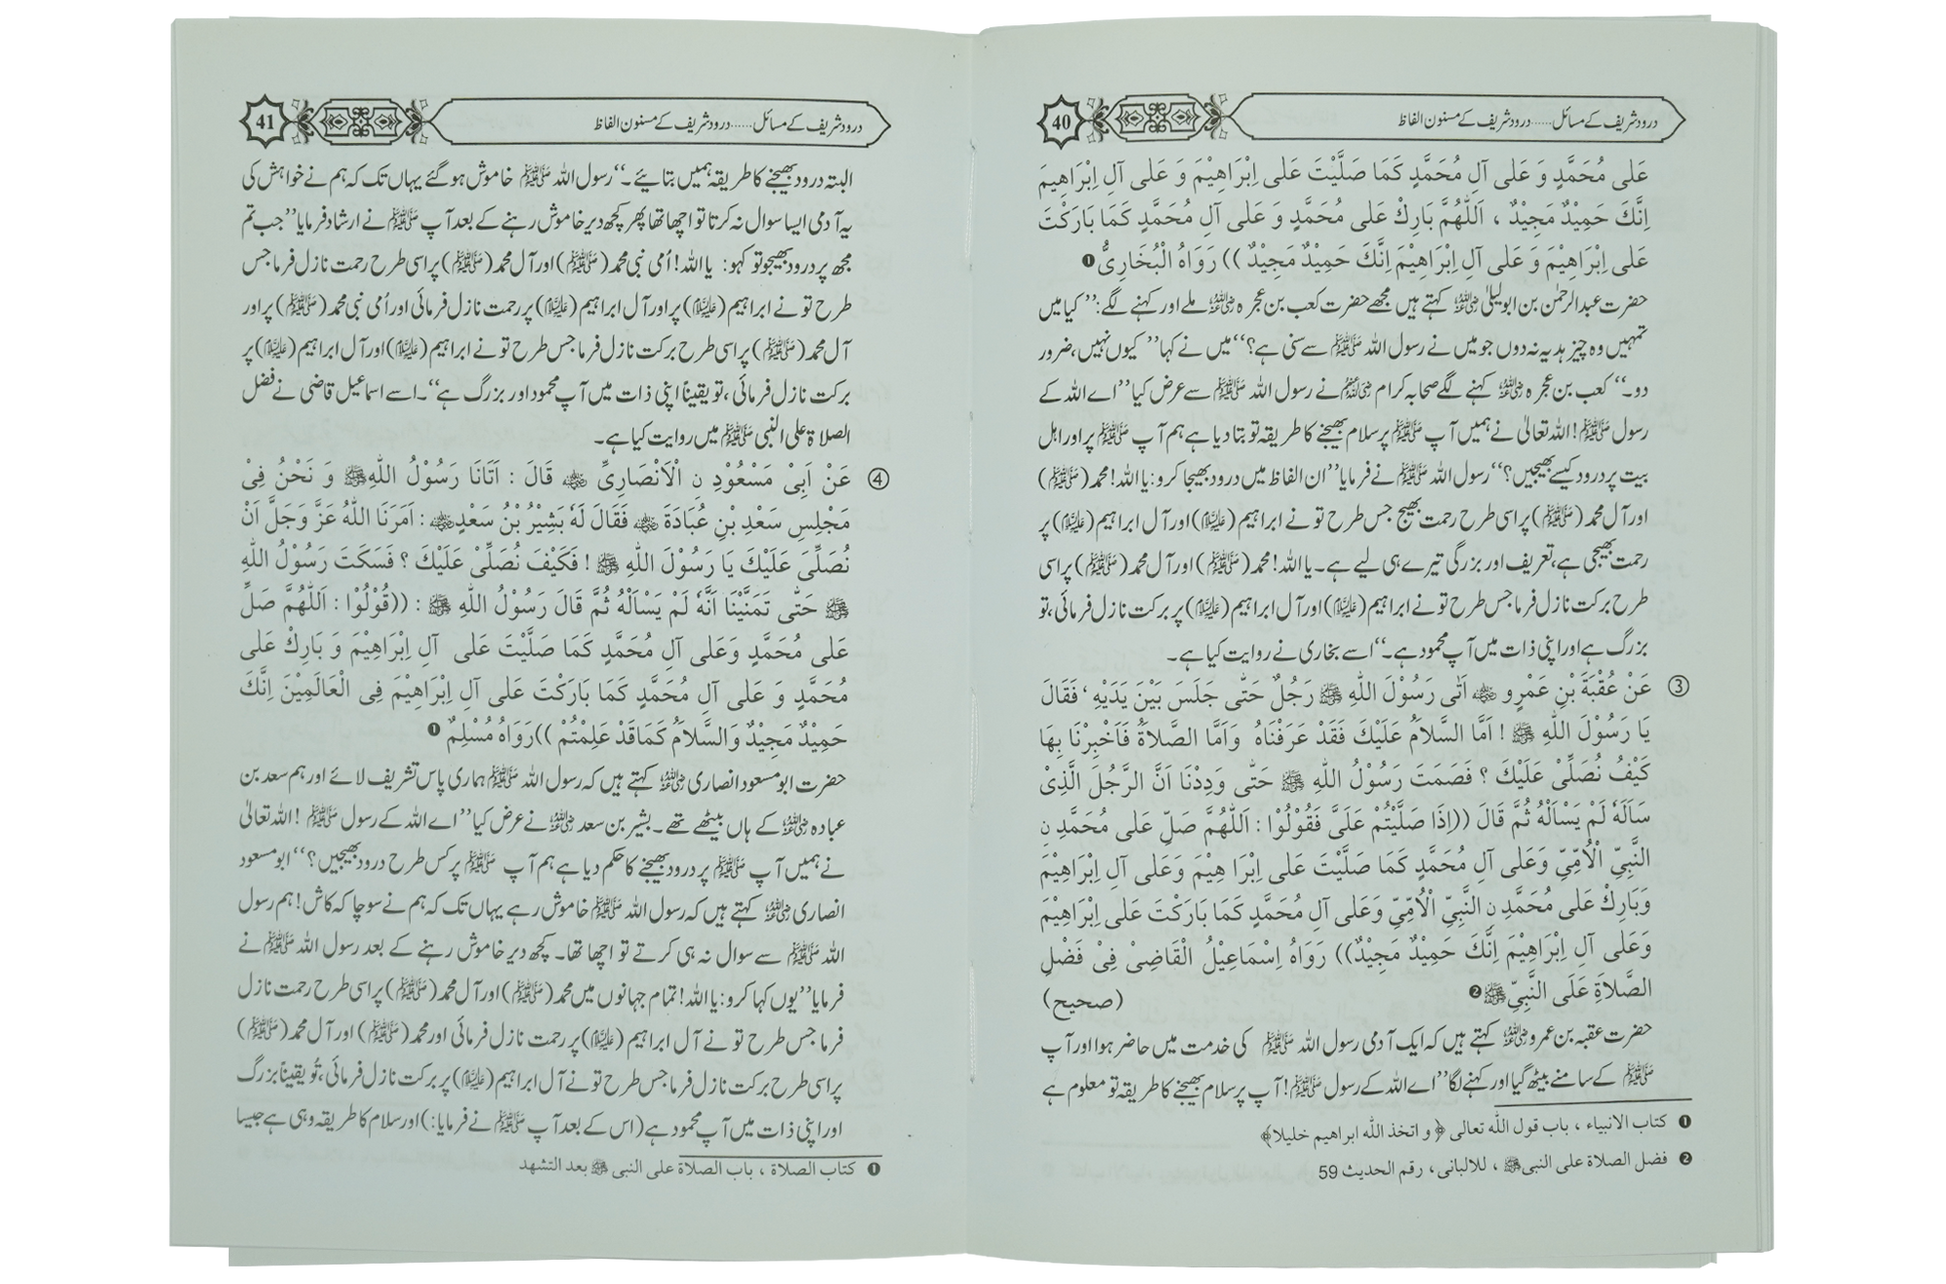 درود شریف کے مسائل ..... درود شریف کے مسنون الفاظ
40
عَلٰی مُحَمَّدٍ وَ عَلٰی آلِ مُحَمَّدٍ کَمَا صَلَّیْتَ عَلٰی اِبْرَاهِیْمَ وَ عَلٰی آلِ اِبْرَاهِیمَ
اِنَّكَ حَمِیْدٌ مَجِیْدٌ ، اَللّٰهُمَّ بَارِكْ عَلٰی مُحَمَّدٍ وَ عَلٰی آلِ مُحَمَّدٍ کَمَا بَارَکْتَ
عَلٰی اِبْرَاهِیْمَ وَ عَلٰی آلِ اِبْرَاهِیْمَ اِنَّكَ حَمِیْدٌ مَجِیْدٌ )) رَوَاهُ الْبُخَارِیُّ ❶
حضرت عبدالرحمٰن بن ابو لیلیٰ رضی اللہ عنہ کہتے ہیں مجھے حضرت کعب بن عجرہ رضی اللہ عنہ ملے اور کہنے لگے: ’’کیا میں
تمہیں وہ چیز ہدیہ نہ دوں جو میں نے رسول اللہ ﷺ سے سنی ہے؟‘‘ میں نے کہا ’’کیوں نہیں، ضرور
دو۔‘‘ کعب بن عجرہ رضی اللہ عنہ کہنے لگے صحابہ کرام رضی اللہ عنہم نے رسول اللہ ﷺ سے عرض کیا ’’اے اللہ کے
رسول ﷺ! اللہ تعالیٰ نے ہمیں آپ ﷺ پر سلام بھیجنے کا طریقہ تو بتا دیا ہے ہم آپ ﷺ پر اور اہل
بیت پر درود کیسے بھیجیں؟‘‘ رسول اللہ ﷺ نے فرمایا ’’ان الفاظ میں درود بھیجا کرو: یا اللہ! محمد (ﷺ)
اور آل محمد (ﷺ) پر اسی طرح رحمت بھیج جس طرح تو نے ابراہیم (علیہ السلام) اور آل ابراہیم (علیہ السلام) پر
رحمت بھیجی ہے، تعریف اور بزرگی تیرے ہی لیے ہے۔ یا اللہ! محمد (ﷺ) اور آل محمد (ﷺ) پر اسی
طرح برکت نازل فرما جس طرح تو نے ابراہیم (علیہ السلام) اور آل ابراہیم (علیہ السلام) پر برکت نازل فرمائی، تو
بزرگ ہے اور اپنی ذات میں آپ محمود ہے۔‘‘ اسے بخاری نے روایت کیا ہے۔
③ عَنْ عُقْبَةَ بْنِ عَمْرٍو رضی اللہ عنہ اَتٰی رَسُوْلَ اللهِ ﷺ رَجُلٌ حَتّٰی جَلَسَ بَیْنَ یَدَیْهِ ، فَقَالَ
یَا رَسُوْلَ اللهِ ﷺ ! اَمَّا السَّلاَمُ عَلَیْكَ فَقَدْ عَرَفْنَاهُ وَاَمَّا الصَّلاَةُ فَاَخْبِرْنَا بِهَا
کَیْفُ نُصَلِّیْ عَلَیْكَ ؟ فَصَمَتَ رَسُوْلُ اللهِ ﷺ حَتّٰی وَدِدْنَا اَنَّ الرَّجُلَ الَّذِیْ
سَاَلَهٗ لَمْ یَسْاَلْهُ ثُمَّ قَالَ ((اِذَا صَلَّیْتُمْ عَلَیَّ فَقُوْلُوْا : اَللّٰهُمَّ صَلِّ عَلٰی مُحَمَّدِ نِ
النَّبِیِّ الْاُمِّیِّ وَعَلٰی آلِ مُحَمَّدٍ کَمَا صَلَّیْتَ عَلٰی اِبْرَا هِیْمَ وَعَلٰی آلِ اِبْرَاهِیْمَ
وَبَارِكْ عَلٰی مُحَمَّدِ نِ النَّبِیِّ الْاُمِّیِّ وَعَلٰی آلِ مُحَمَّدٍ کَمَا بَارَکْتَ عَلٰی اِبْرَاهِیْمَ
وَعَلٰی آلِ اِبْرَاهِیْمَ اِنَّكَ حَمِیْدٌ مَجِیْدٌ)) رَوَاهُ اِسْمَاعِیْلُ الْقَاضِیْ فِیْ فَضْلِ
الصَّلاَةِ عَلَی النَّبِیِّ ﷺ ❷ (صحیح)
حضرت عقبہ بن عمرو رضی اللہ عنہ کہتے ہیں کہ ایک آدمی رسول اللہ ﷺ کی خدمت میں حاضر ہوا اور آپ
ﷺ کے سامنے بیٹھ گیا اور کہنے لگا ’’اے اللہ کے رسول ﷺ! آپ پر سلام بھیجنے کا طریقہ تو معلوم ہے
❶ کتاب الانبیاء ، باب قول اللہ تعالی ﴿و اتخذ اللہ ابراهیم خلیلا﴾
❷ فضل الصلاة علی النبی ﷺ ، للالبانی ، رقم الحدیث 59
درود شریف کے مسائل ..... درود شریف کے مسنون الفاظ
41
البتہ درود بھیجنے کا طریقہ ہمیں بتائیے۔‘‘ رسول اللہ ﷺ خاموش ہو گئے یہاں تک کہ ہم نے خواہش کی
یہ آدمی ایسا سوال نہ کرتا تو اچھا تھا پھر کچھ دیر خاموش رہنے کے بعد آپ ﷺ نے ارشاد فرمایا ’’جب تم
مجھ پر درود بھیجو تو کہو: یا اللہ! اُمی نبی محمد (ﷺ) اور آل محمد (ﷺ) پر اسی طرح رحمت نازل فرما جس
طرح تو نے ابراہیم (علیہ السلام) پر اور آل ابراہیم (علیہ السلام) پر رحمت نازل فرمائی اور اُمی نبی محمد (ﷺ) پر اور
آل محمد (ﷺ) پر اسی طرح برکت نازل فرما جس طرح تو نے ابراہیم (علیہ السلام) اور آل ابراہیم (علیہ السلام) پر
برکت نازل فرمائی، تو یقیناً اپنی ذات میں آپ محمود اور بزرگ ہے‘‘۔ اسے اسماعیل قاضی نے فضل
الصلاۃ علی النبی ﷺ میں روایت کیا ہے۔
④ عَنْ اَبِیْ مَسْعُوْدِ نِ الْاَنْصَارِیِّ رضی اللہ عنہ قَالَ : اَتَانَا رَسُوْلُ اللّٰهِ ﷺ وَ نَحْنُ فِیْ
مَجْلِسِ سَعْدِ بْنِ عُبَادَةَ رضی اللہ عنہ فَقَالَ لَهٗ بَشِیْرُ بْنُ سَعْدٍ رضی اللہ عنہ : اَمَرَنَا اللهُ عَزَّ وَجَلَّ اَنْ
نُصَلِّیَ عَلَیْكَ یَا رَسُوْلَ اللهِ ﷺ ! فَکَیْفَ نُصَلِّیْ عَلَیْكَ ؟ فَسَکَتَ رَسُوْلُ اللهِ
ﷺ حَتّٰی تَمَنَّیْنَا اَنَّهٗ لَمْ یَسْاَلْهُ ثُمَّ قَالَ رَسُوْلُ اللهِ ﷺ : ((قُوْلُوْا : اَللّٰهُمَّ صَلِّ
عَلٰی مُحَمَّدٍ وَعَلٰی آلِ مُحَمَّدٍ کَمَا صَلَّیْتَ عَلٰی آلِ اِبْرَاهِیْمَ وَ بَارِكْ عَلٰی
مُحَمَّدٍ وَ عَلٰی آلِ مُحَمَّدٍ کَمَا بَارَکْتَ عَلٰی آلِ اِبْرَاهِیْمَ فِی الْعَالَمِیْنَ اِنَّكَ
حَمِیْدٌ مَجِیْدٌ وَالسَّلاَمُ کَمَا قَدْ عَلِمْتُمْ )) رَوَاهُ مُسْلِمٌ ❶
حضرت ابو مسعود انصاری رضی اللہ عنہ کہتے ہیں کہ رسول اللہ ﷺ ہماری پاس تشریف لائے اور ہم سعد بن
عبادہ رضی اللہ عنہ کے ہاں بیٹھے تھے۔ بشیر بن سعد رضی اللہ عنہ نے عرض کیا ’’اے اللہ کے رسول ﷺ ! اللہ تعالیٰ
نے ہمیں آپ ﷺ پر درود بھیجنے کا حکم دیا ہے ہم آپ ﷺ پر کس طرح درود بھیجیں؟‘‘ ابو مسعود
انصاری رضی اللہ عنہ کہتے ہیں کہ رسول اللہ ﷺ خاموش رہے یہاں تک کہ ہم نے سوچا کہ کاش! ہم رسول
اللہ ﷺ سے سوال نہ ہی کرتے تو اچھا تھا۔ کچھ دیر خاموش رہنے کے بعد رسول اللہ ﷺ نے
فرمایا ’’یوں کہا کرو: یا اللہ! تمام جہانوں میں محمد (ﷺ) اور آل محمد (ﷺ) پر اسی طرح رحمت نازل
فرما جس طرح تو نے آل ابراہیم (علیہ السلام) پر رحمت نازل فرمائی اور محمد (ﷺ) اور آل محمد (ﷺ)
پر اسی طرح برکت نازل فرما جس طرح تو نے آل ابراہیم (علیہ السلام) پر برکت نازل فرمائی، تُو یقیناً بزرگ
اور اپنی ذات میں آپ محمود ہے (اس کے بعد آپ ﷺ نے فرمایا:) اور سلام کا طریقہ وہی ہے جیسا
❶ کتاب الصلاة ، باب الصلاة علی النبی ﷺ بعد التشهد